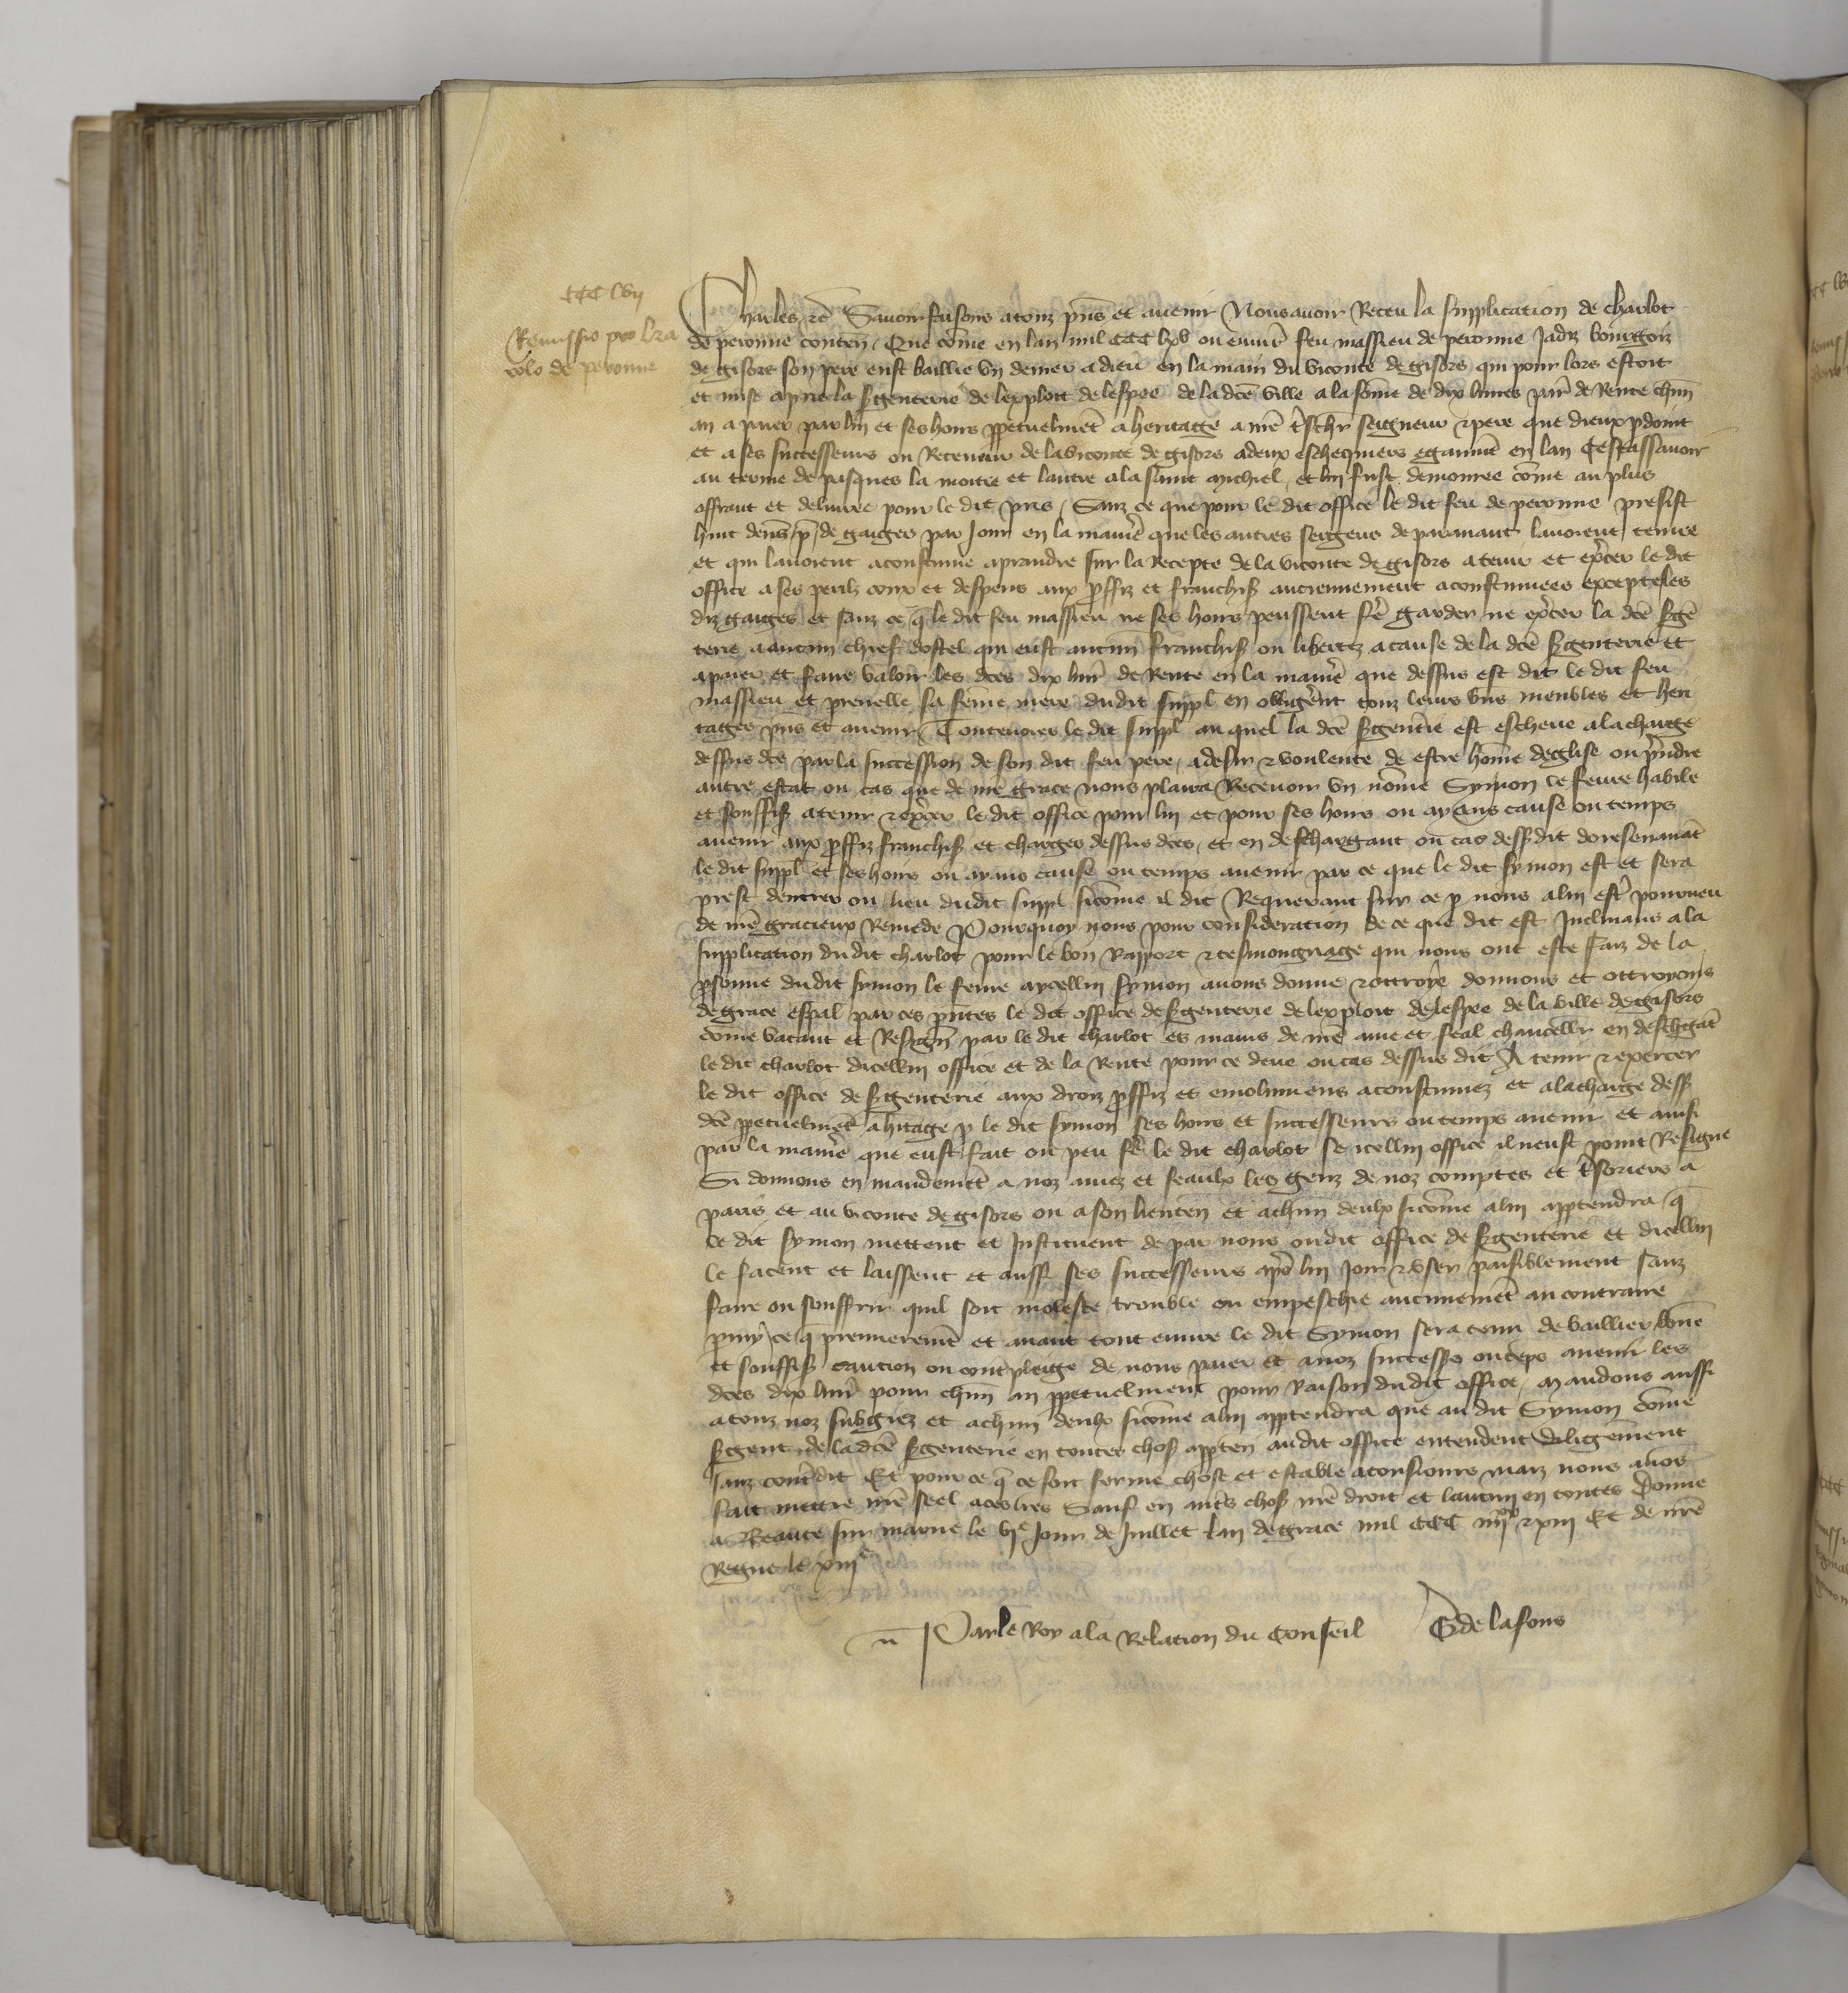 CCC lvii
Remissio pro
rolo de peronne
Charles etc Savoir faisons a touz pns et avenir Nous avoir Receu la supplication de charlot
de peronne conten Que come en lan mil CCC lxv ou environ feu massieu de peronne Jadiz bourgois
de gisors son pere eust baillie un denier a dieu en la main du viconte de gisors qui pour lors estoit
et mise a pris la sgenterie de lexploit de lespee de la dce ville a la some de dix livres par de Rente chun
an a paier par lui et ses hoirs ppetuelmet a heritage a nre treschr seigneur et pere que dieux pdoint
et a ses successeurs ou Receveur de la viconte de gisors a deux eschequiers egaument en lan Cest assavoir
au terme de pasques la moitie et lautre a la saint michiel et lui fust demouree come au plus
offrant et delivree pour le dit pris Sanz ce que pour le dit office le dit feu de peronne presist
huit den p de gaiges par Jour en la manie que les autres sergens de paravant lavoient tenue
et qui lavoient acoustume a prandre sur la Recepte de la viconte de gisors a tenir et excer le dit
office a ses perilz coux et despens aux pffiz et franchis anciennement acoustumees excepte les
diz gaiges et sanz ce q le dit feu massieu ne ses hoirs peussent fe garder ne excer la dce sgen
terie a aucun chief dostel qui eust aucun franchis ou libertez a cause de la dce sgenterie Et
a paier et faire valoir les dces dix livr de Rente en la manie que dessus est dit le dit feu
massieu et perenelle sa feme mere dudit suppl en obligerent touz leurs biens meubles et heri
tages pns et avenir Toutevoies le dit suppl au quel la dce sgentie est escheue a la charge
dessus dce par la succession de son dit feu pere a desir et voulente de estre home deglise ou prendre
autre estat ou cas que de nre grace nous plaira Recevoir un nome Symon le fevre habile
et souffis a tenir et excer le dit office pour lui et pour ses hoirs ou aians cause ou temps
avenir aux pffiz franchis et charges dessus dces et en deschargant ou cas dessdit doresenavat
le dit suppl et ses hoirs ou aians cause ou temps avenir par ce que le dit symon est et sera
prest dentrer ou lieu dudit suppl sicome il dit Requerant sur ce p nous a lui estre pourveu
de nre gracieux Remede Pourquoy nous pour consideration de ce que dit est Inclinans a la
supplication du dit charlot pour le bon Rapport et tesmongnage qui nous ont este faiz de la
psonne du dit symon le fevre aycellui symon avons donne et ottroye donnons et ottroyons
de grace espal par ces pntes le dit office de sgenterie de lexploit de lespee de la ville de gisors
come vacant et Resign par le dit charlot es mains de nre ame et feal chancellr en deschgat
le dit charlot dicellui office et de la Rente pour ce deue ou cas dessus dit A tenir et exercer
le dit office de sgenterie aux droiz pffiz et emolumens acoustumez et a la charge dess
dce ppetuelmet a hitage p le dit symon ses hoirs et successeurs ou temps avenir et ainsi
par la manie que eust fait ou peu fe le dit charlot se icellui office il neust point Resigne
Si donnons en mandemet a noz amez et feaulx les genz de noz comptes et tsoriers a
paris et au viconte de gisors ou a son lieuten et a chun deulx sicome a lui apptendra q
le dit symon mettent et Instituent de par nous ou dit office de sgenterie et dicellui
le facent et laissent et aussi ses successeurs apres lui Joir et user paisiblement sanz
faire ou souffrir quil soit moleste trouble ou empeschie aucunemet au contraire
pmy ce q premieremet et avant tout euvre le dit Symon sera tenu de baillier bone
et souffis caucion ou contrepleige de nous paier et a noz success ou teps avenir les
dces dix livr pour chun an ppetuelment pour Raison du dit office Mandons aussi
a touz noz subgiez et a chun deulx sicome a lui apptendra que au dit Symon come
sgent de la dce sgenterie en toutes chos appten au dit office entendent diligement
sanz contredit Et pour ce q ce soit ferme chose et estable a tousiours maiz nous avos
fait mettre nre seel a ces lres Sauf en autres chos nre droit et lautrui en toutes Donne
a Beaute sur marne le vie Jour de Juillet lan de grace mil CCC iiiixx et xiii Et de nre
Regne le xiiie
Par le Roy a la Relation du conseil G de lafons